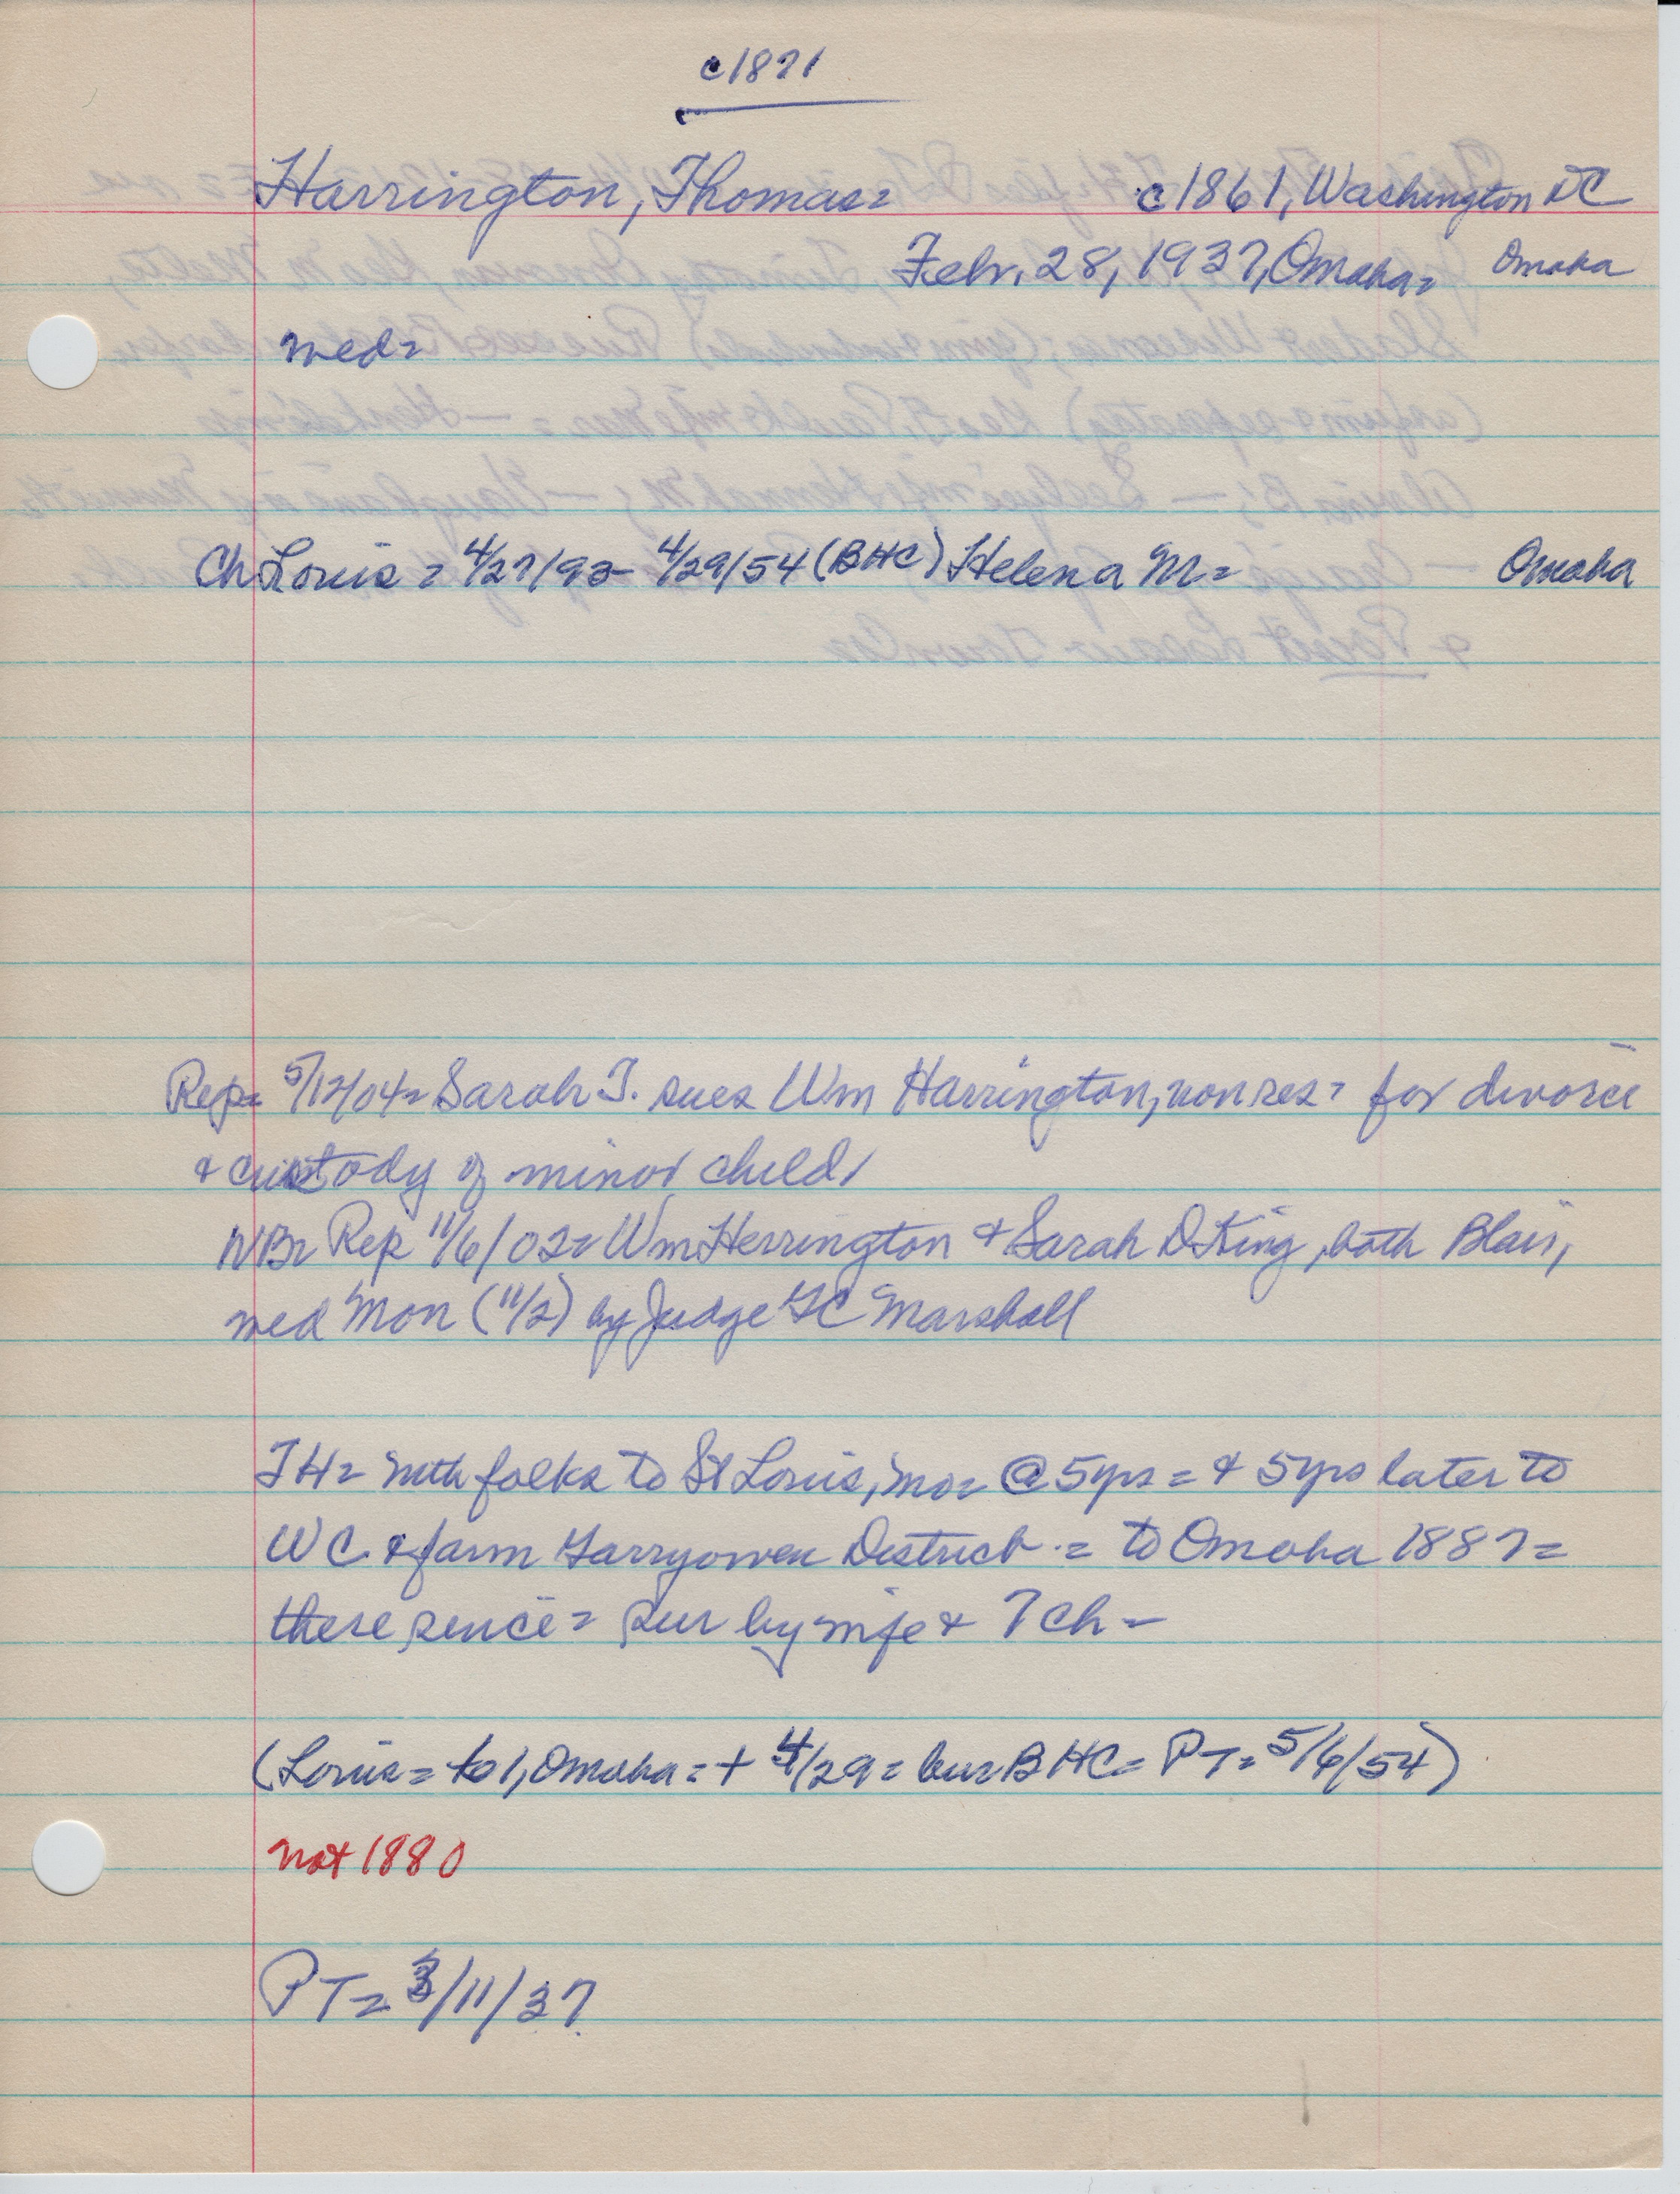 c1871
Harrington, Thomas= c1861, Washington DC
Febr. 28, 1937, Omaha= Omaha
med=
Ch Louis= 4/27/93- 4/29/54 (BHC) Helen a M= Omaha
Rep= 5/12/04= Sarah J. sues Wm Harrington, nonres= for divorce
& custody of minor child
Rep 11/6/02= Wm Herrington & Sarah D King, both Blair,
med Mon (11/2) by Judge Marshall
TH= with folks to St Louis, Mo= @ 5yrs= & 5yrs later to
WC & farm Garryowen District= to Omaha 1887=
there since= sur by wife & 7 ch-
(Louis= Omaha=+ 4/29= bur BHC= PT= 5/6/54)
not 1880
PT= 3/11/37